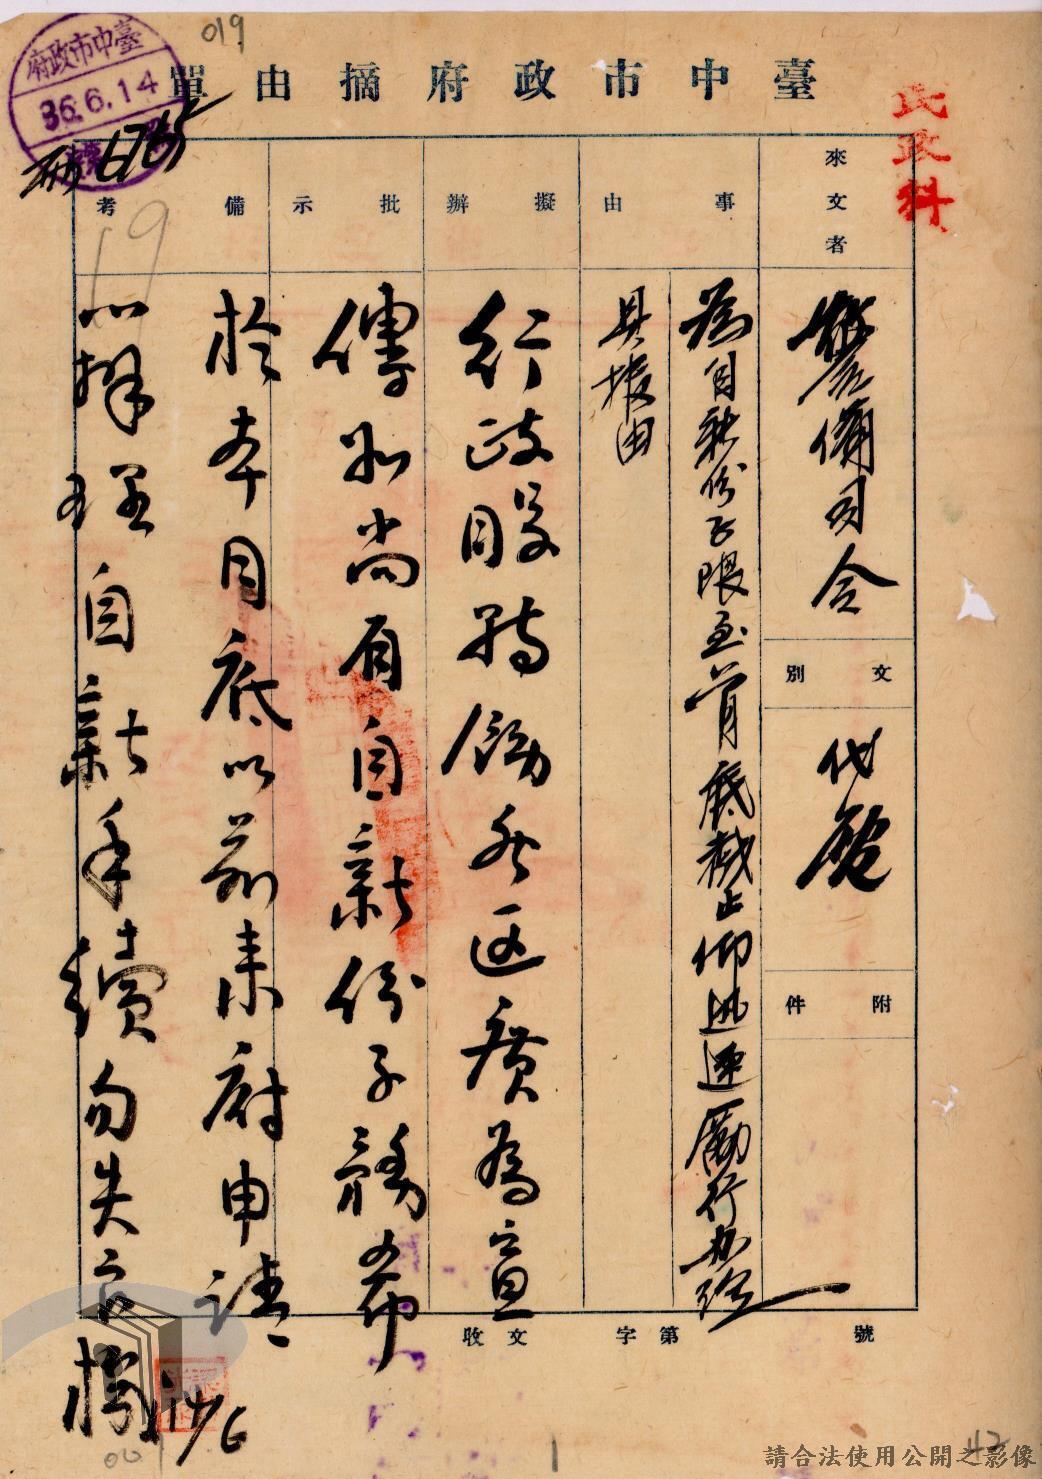 019
臺中市政府
36.6.14
臺中市政府摘由單
民政科
來文者
事由
擬辦
批示
備考
警備司令
文別
代電
附件
為自新份子限至 月底截止仰迅速勵行办理
具报由
行政股转飭各區廣為宣
傳如尚有自新份子務希
於本月底以前来府申請
辦理自新手續勿失良機
14/6
收文 字第 號
19
1
42
請合法使用公開之影像